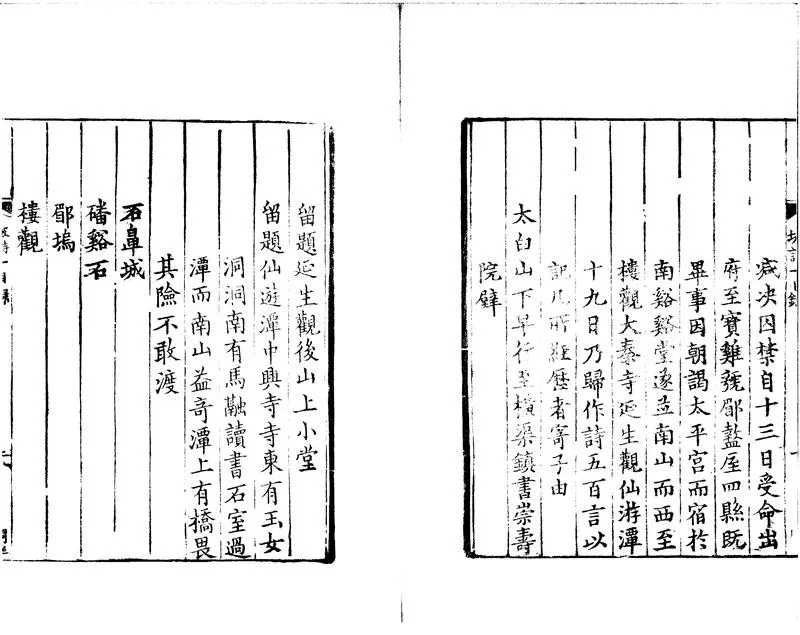 减决囚禁自十三日受命出
府至寶雞虢郿盩厔四縣既
畢事因朝謁太平宮而宿於
南谿谿堂遂並南山而西至
樓觀大秦寺延生觀仙游潭
十九日乃歸作詩五百言以
記凡所經歷者寄子由
太白山下早行至橫渠鎮書崇壽
院壁
留題延生觀後山上小堂
留題仙遊潭中興寺寺東有玉女
洞洞南有馬融讀書石室過
潭而南山益奇潭上有橋畏
其險不敢渡
石鼻城
磻谿石
郿塢
樓觀